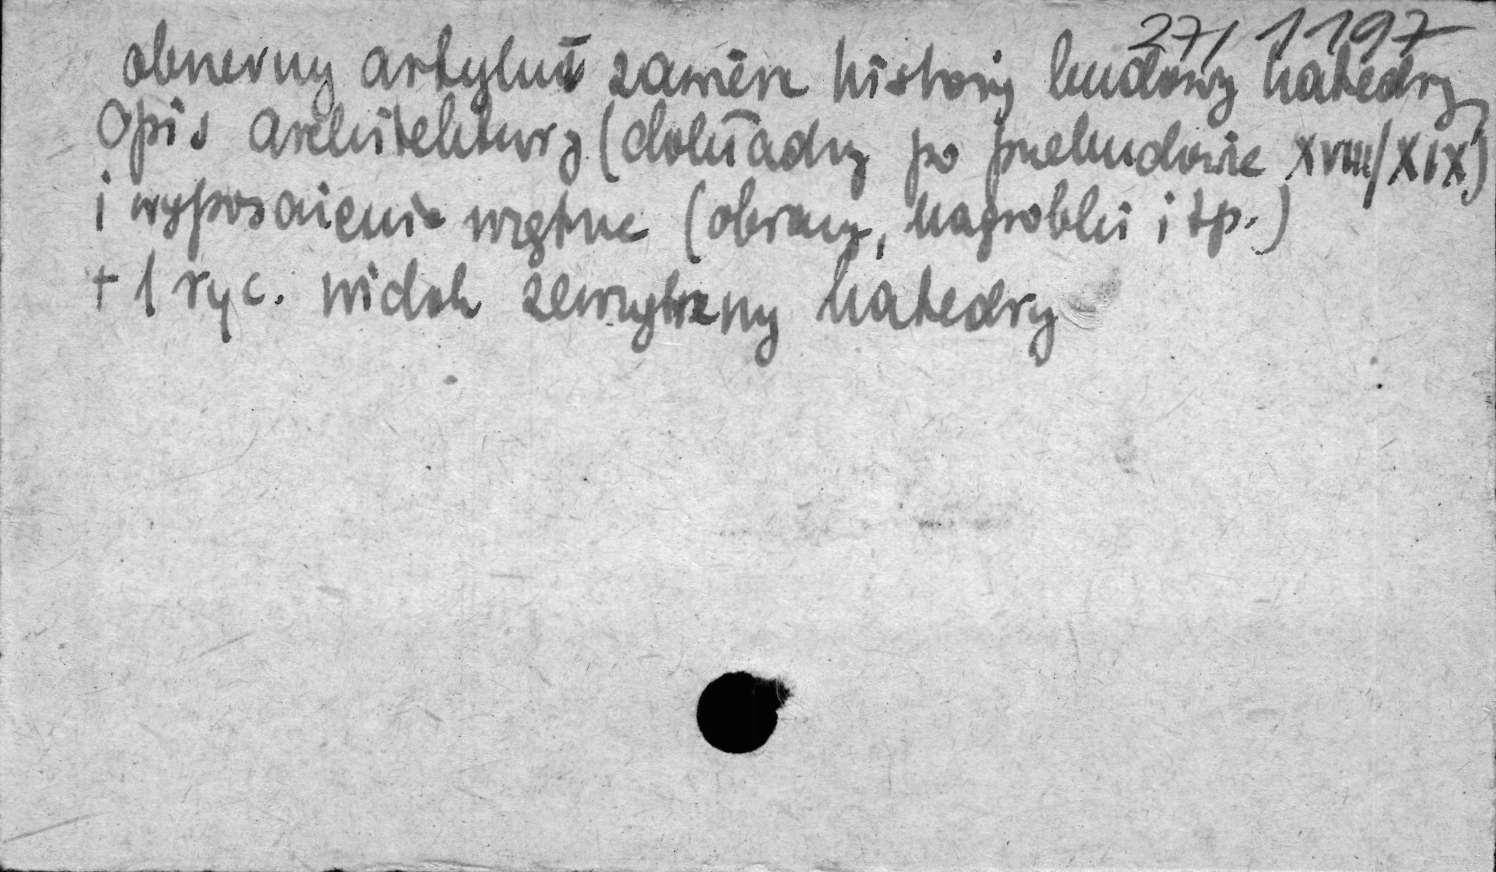 27/1197
obszerny artykuł zawiera historię budowy katedry
Opis architektury (dokładny po przebudowie XVIII/XIX)
i wyposażenie wnętrz (obrazy, nagrobki itp.)
+ 1 ryc. widok zewnętrzny katedry